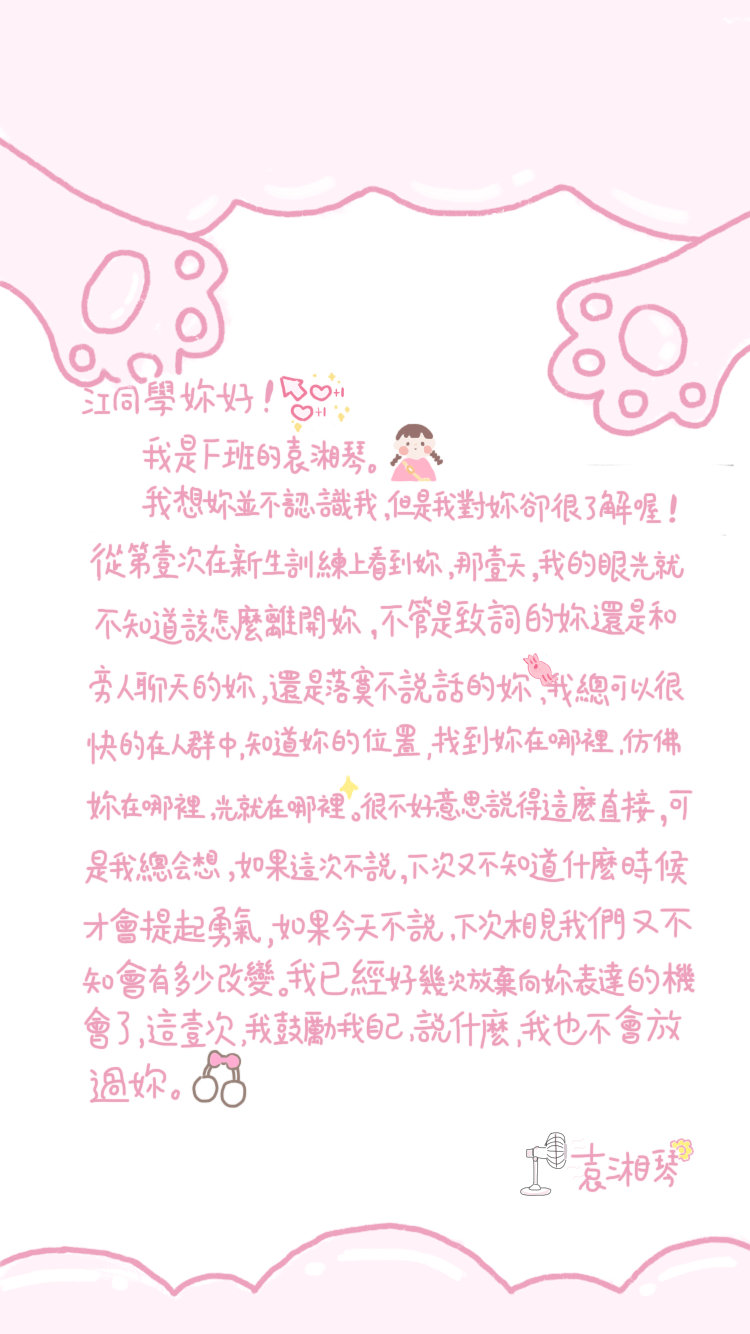 江同學妳好！
+1
+1
我是F班的袁湘琴。
我想妳並不認識我,但是我對妳卻很了解喔！
從第壹次在新生訓練上看到妳,那壹天,我的眼光就
不知道該怎麼離開妳,不管是致詞的妳還是和
旁人聊天的妳,還是落寞不說話的妳、我總可以很
快的在人群中,知道妳的位置,找到妳在哪裡,仿佛
妳在哪裡,光就在哪裡。很不好意思說得這麽直接,可
是我總会想,如果這次不說,下次又不知道什麽時候
才會提起勇氣,如果今天不說,下次相見我們又不
知會有多少改變。我已經好幾次放棄向妳表達的機
會了,這壹次,我鼓勵我自己,說什麽,我也不會放
過妳。
袁湘琴